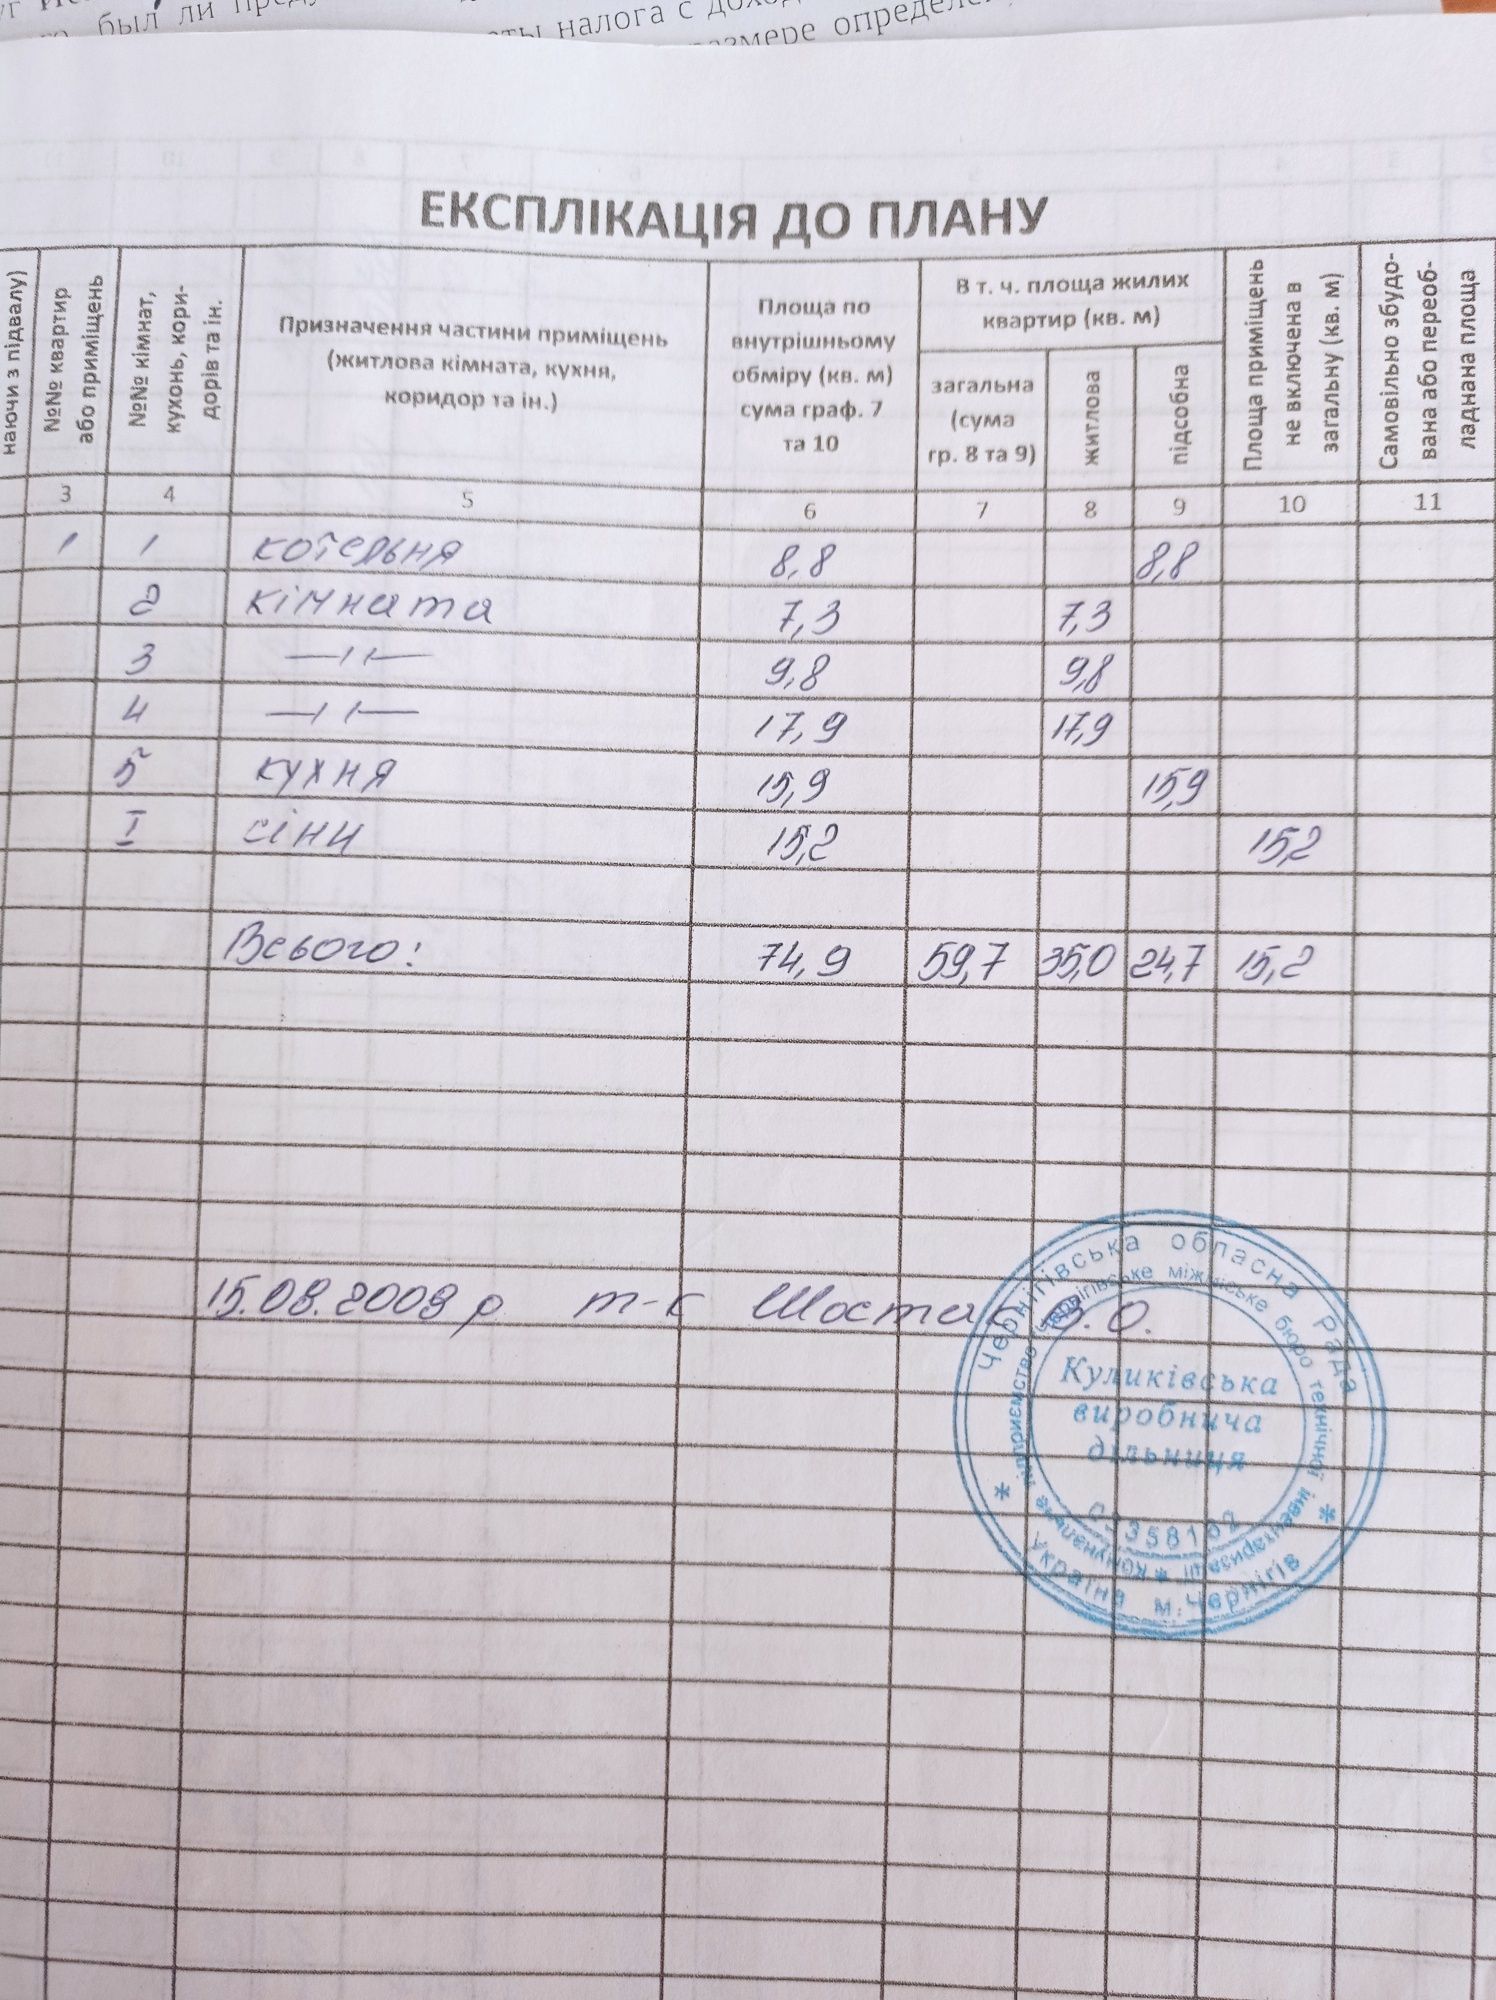 был ли
налога с
размере
ЕКСПЛІКАЦІЯ ДО ПЛАНУ
наючи з підвалу)
№№ квартир або приміщень
№№ кімнат, кухонь, кори-дорів та ін.
Призначення частини приміщень
(житлова кімната, кухня,
коридор та ін.)
Площа по
внутрішньому
обміру (кв. м)
сума граф. 7
та 10
В т. ч. площа жилих
квартир (кв. м)
загальна
(сума
гр. 8 та 9)
житлова
підсобна
Площа приміщень
не включена в
загальну (кв. м)
Самовільно збудо-
вана або переоб-
ладнана площа
3 4 5 6 7 8 9 10 11
1 1 котельня 8,8 8,8
2 кімната 7,3 7,3
3 —ıı— 9,8 9,8
4 —ıı— 17,9 17,9
5 кухня 15,9 15,9
I сіни 15,2 15,2
Всього: 74,9 59,7 35,0 24,7 15,2
15.08.2009 р. т-к Шостак В.О.
Чернігівська обласна Рада
підприємство Чернігівське міжміське бюро технічної інвентаризації * Комунальне
Куликівська
виробнича
дільниця
Україна м. Чернігів